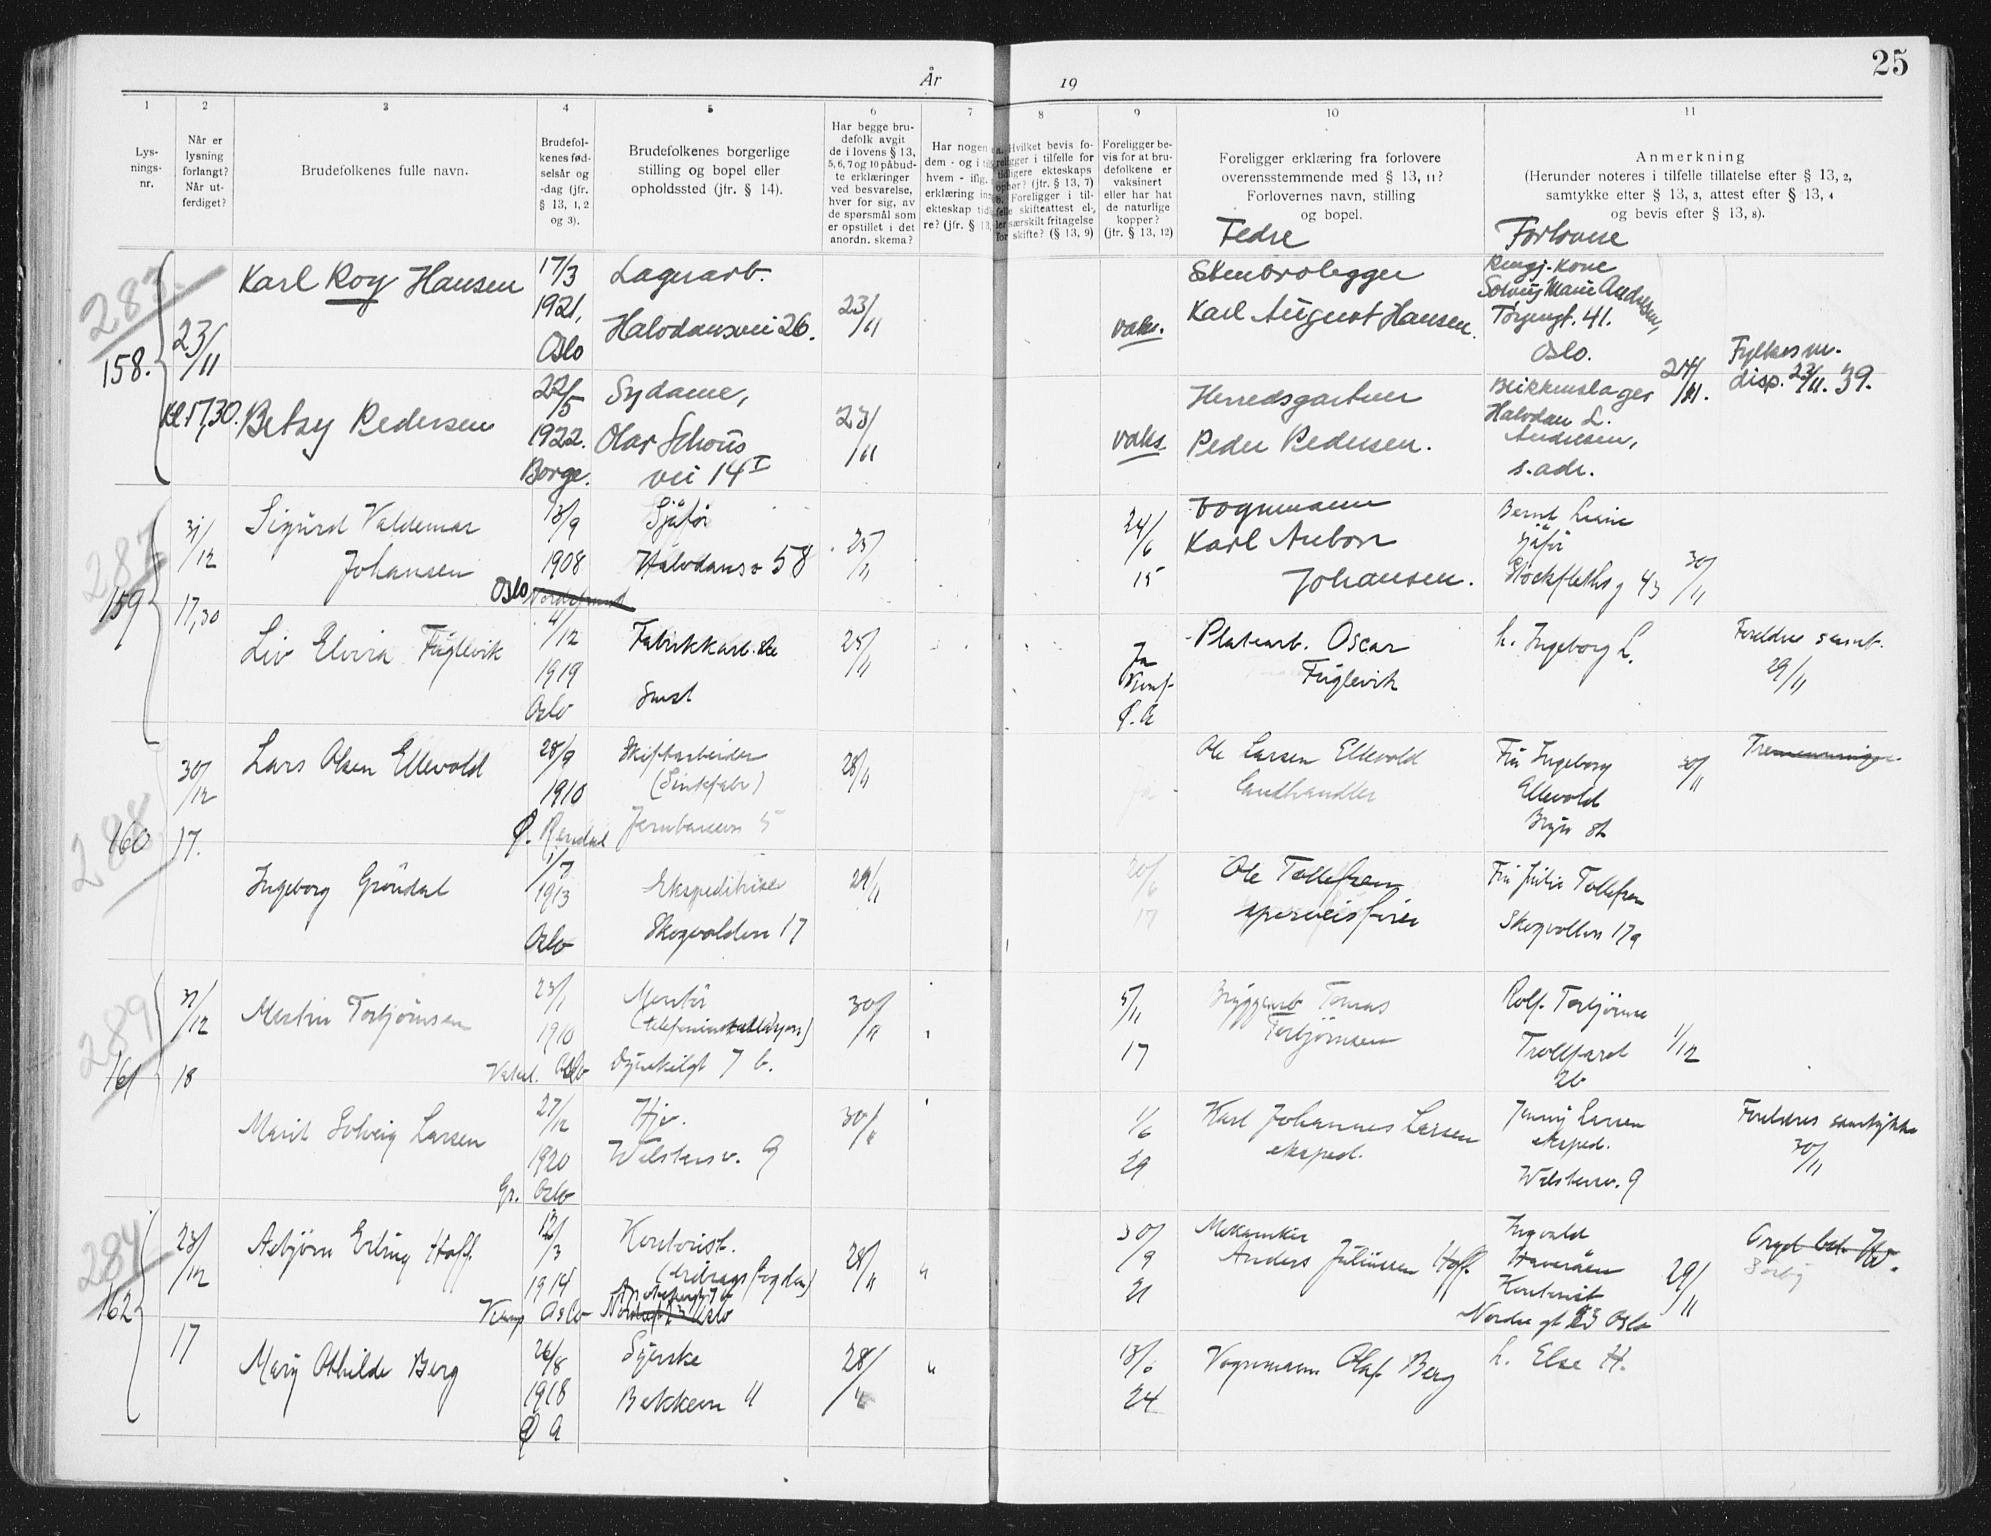 25
År 19
1 2 3 4 5 6 7 8 9 10 11
Lys-
nings-
nr.
Når er
lysning
forlangt?
Når ut-
ferdiget?
Brudefolkenes fulle navn.
Brudefol-
kenes fød-
selsår og
-dag (jfr.
§ 13, 1, 2
og 3).
Brudefolkenes borgerlige
stilling og bopel eller
opholdssted (jfr. § 14).
Har begge bru-
defolk avgit
de i lovens § 13,
5, 6, 7 og 10 påbud-
te erklæringer
ved besvarelse,
hver for sig, av
de spørsmål som
er opstillet i det
anordn. skema?
Har nogen
dem - og i
hvem - iflg.
erklæring in
ekteskap tid
re? (jfr. § 13,
Hvilket bevis fo-
religger i tilfelle for
tidligere ekteskaps
ophør? (jfr. § 13, 7)
Foreligger i til-
felle skifteattest el-
ler særskilt fritagelse
for skifte? (§ 13, 9)
Foreligger be-
vis for at bru-
defolkene er
vaksinert
eller har hat
de naturlige
kopper?
(jfr. § 13, 12)
Foreligger erklæring fra forlovere
overensstemmende med § 13, 11?
Forlovernes navn, stilling
og bopel.
Fedre
Anmerkning
(Herunder noteres i tilfelle tillatelse efter § 13, 2,
samtykke efter § 13, 3, attest efter § 13, 4
og bevis efter § 13, 8).
Forlovere
158.
23/11
kl 17,30.
Karl Roy Hansen
17/3
1921,
Oslo
Lagerarb.
Halvdansvei 26.
23/11
vaks.
Stenbrolegger
Karl August Hansen.
Rengj. kone
Solveig Marie Andresen,
Torggt. 41.
Oslo.
24/11.
Fylkesm.
disp. 23/11. 39.
Betsy Pedersen
22/5
1922.
Borge.
Sydame,
Olav Schous
vei 14 I
23/11
vaks.
Herredsgartner
Peder Pedersen.
Blikkenslager
Halvdan L.
Andresen,
s. adr.
287
159
31/12
17,30
Sigurd Valdemar
Johansen
13/9
1908
Oslo
Sjåfør
Halvdansv 58
25/11
24/6
15
Vognmann
Karl Anton
Johansen.
Bernt Lunie
sjåfør
Stockflethsg 43
30/11
Liv Elvira Fuglevik
4/12
1919
Oslo
Fabrikkarb.ske
Smst
25/11
Ja
Konf.
Ø. A
Platearb. Oscar
Fuglevik
h. Ingeborg L.
Foreldres samt.
29/11
288
160
30/12
17.
Lars Olsen Ellevold
28/9
1910
Ø. Rendal
Skiftarbeider
(Sinkfabr)
Jernbanevn 5
28/11
Ja
Ole Larsen Ellevold
landhandler
Fru Ingeborg
Ellevold
Bryn st
30/11
Ingeborg Grøndal
1/7
1913
Oslo
Ekspeditrise
Skogvolden 17
29/11
20/6
17
Ole Tollefsen
sporveisfører
Fru Julie Tollefsen
Skogvollen 17a
289
161
31/12
18
Martin Torbjørnsen
23/1
1910
Vatel. Oslo
Montør
(telefoninstallasjon)
Dynekilgt 7 b.
30/11
5/11
17
Bryggearb Tomas
Torbjørnsen
Rolf Torbjørnse
Trollfaret
26
1/12
Marit Solveig Larsen
27/12
1920
Gr. Oslo
Hjv.
Welstensv. 9
30/11
1/6
29
Karl Johannes Larsen
eksped.
Jenny Larsen
eksped.
Welstenv. 9
Foreldres samtykke
30/11
284
162
23/12
17
Asbjørn Erling Hoff.
12/3
1914
Kamp Oslo
Kontorist.
28/11
"
30/9
21
Mekaniker
Anders Juliussen Hoff.
Ingvald
Haveråen
Kontorist
Nordre gt 23 Oslo
29/11
Mary Othilde Berg
26/8
1918
Ø A
Syerske
Bekkeen 11
28/11
"
18/6
24
Vognmann Olaf Berg
h. Else H.